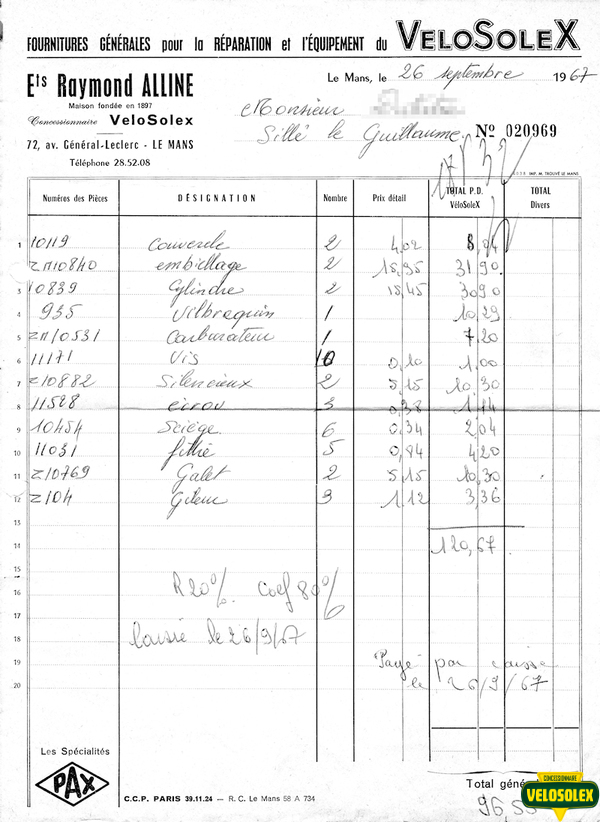 FOURNITURES GÉNÉRALES pour la RÉPARATION et l'ÉQUIPEMENT du VELOSOLEX
Ets Raymond ALLINE
Maison fondée en 1897
Concessionnaire VELOSOLEX
72, av. Général-Leclerc - LE MANS
Téléphone 28.52.08
Le Mans, le 26 septembre 1967
Monsieur
Sillé le Guillaume
No 020969
IMP. M. TROUVÉ LE MANS
Numéros des Pièces DÉSIGNATION Nombre Prix détail TOTAL P.D. VÉLOSOLEX TOTAL Divers
1 10119 Couvercle 2 4,02 8,04
Z1110840 embiellage 2 15,95 31,90
3 10839 Cylindre 2 15,45 30,90
4 935 Vilbrequin 1 10,29
5 Z1110531 Carburateur 1 7,20
6 11171 Vis 10 0,10 1,00
7 Z10882 Silencieux 2 5,15 10,30
8 11528 écrou 3 0,38 1,14
9 10454 Sciège 6 0,34 2,04
10 11031 5 0,84 4,20
11 Z10769 Galet 2 5,15 10,30
12 Z104 3 1,12 3,36
13
14 120,67
15
16 R 20% Coef 80%
17
18 le 26/9/67
19 Payé par caisse
20 le 26/9/67
Les Spécialités
PAX
C.C.P. PARIS 39.11.24 - R. C. Le Mans 58 A 734
Total géné
CONCESSIONNAIRE
VELOSOLEX